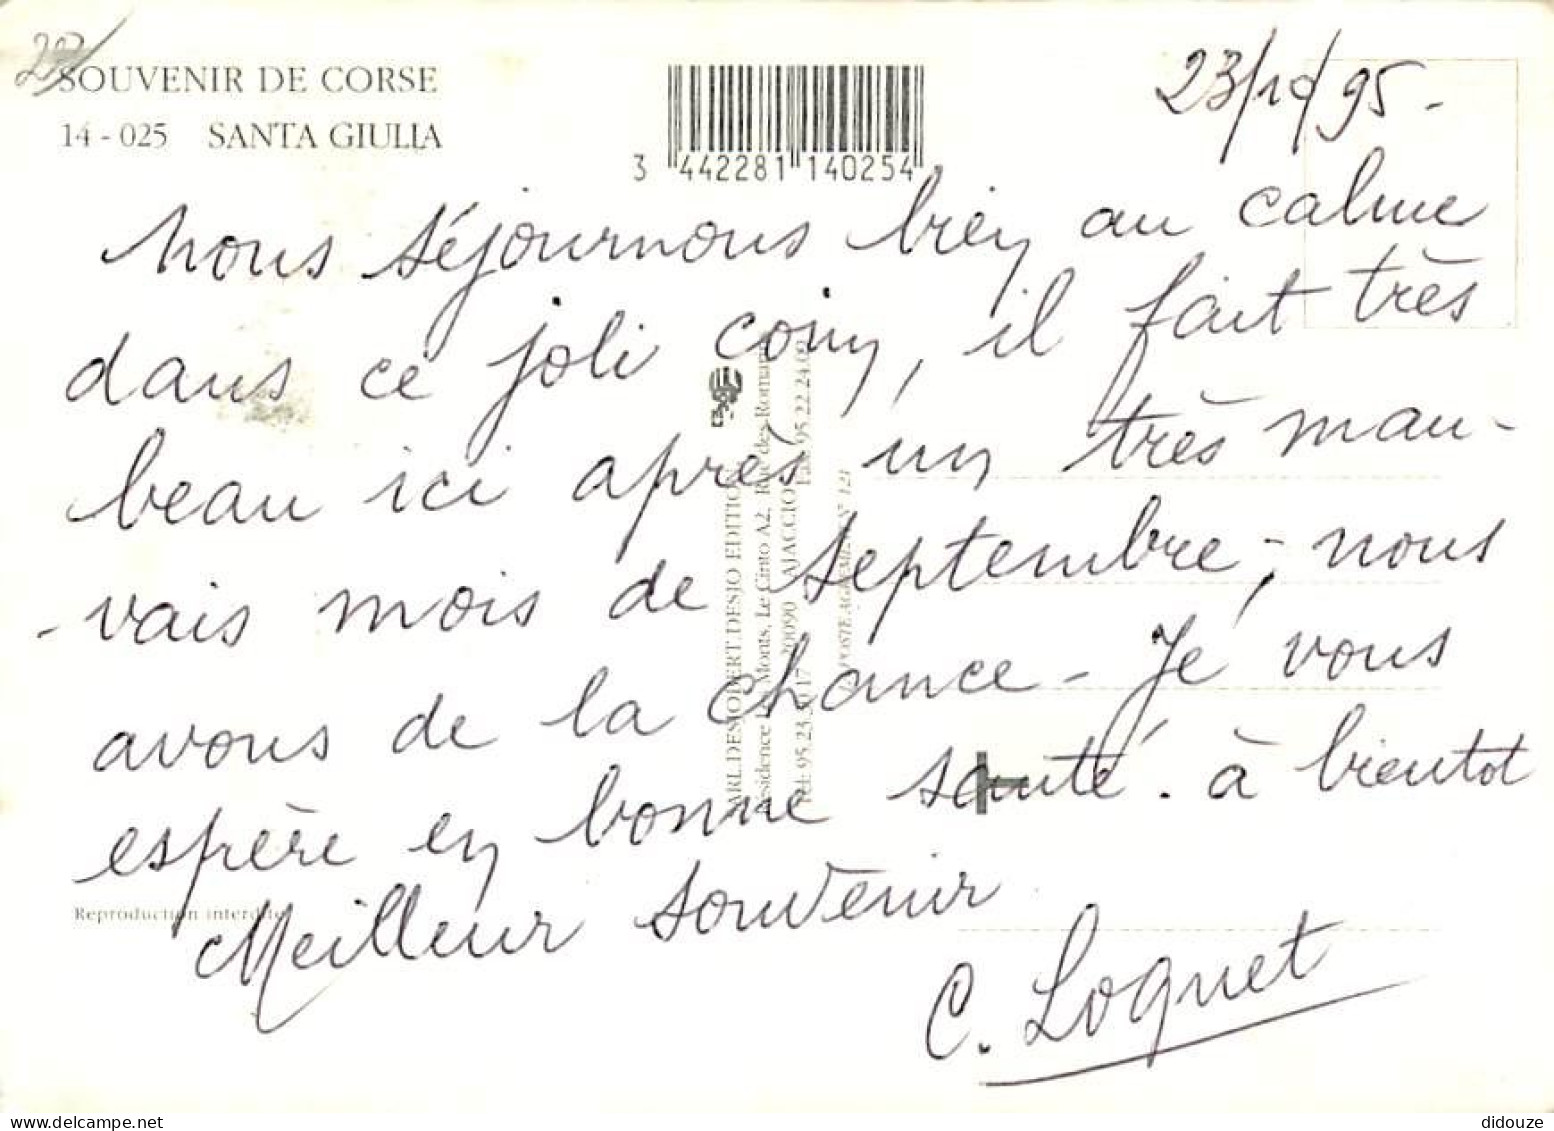 SOUVENIR DE CORSE
14 - 025 SANTA GIULIA
3 442281 140254
23/10/95 -
Nous séjournons bien au calme
dans ce joli coin, il fait très
beau ici après un très mau-
-vais mois de Septembre, nous
avons de la chance - Je vous
espère en bonne santé. à bientot
Meilleur souvenir
C. Loquet
Reproduction interdite
Résidence Les Monts, Le Cinto A2, Rue des Romarins
20090 AJACCIO
95.22.24.00
didouze